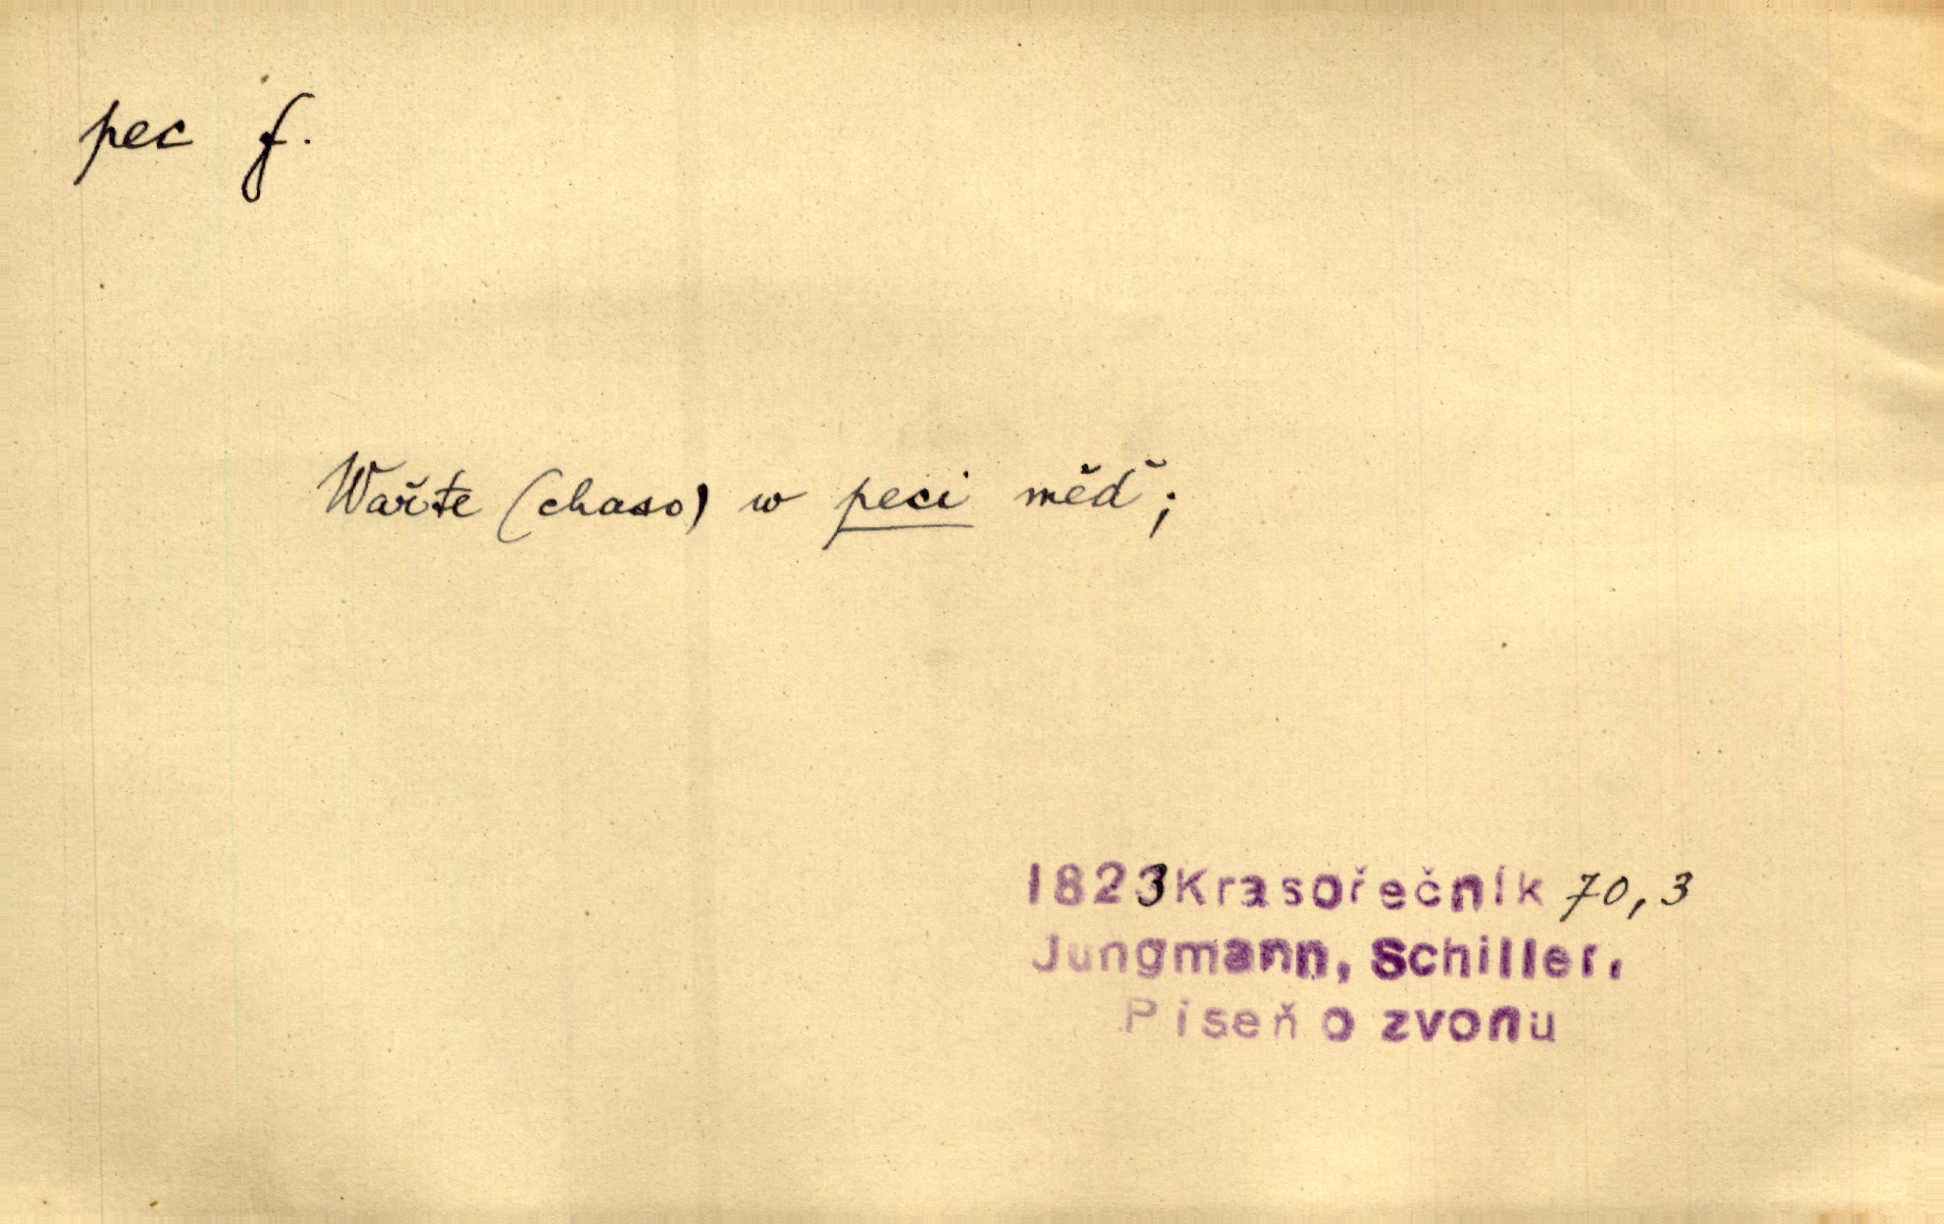 pec f.
Wařte (chaso) w peci měď;
1823 Krasořečník 70,3
Jungmann, Schiller,
Píseň o zvonu